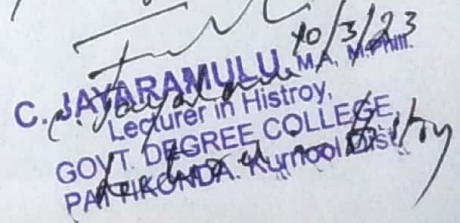 10/3/23
C. JAYARAMULU, M.A, M.Phill.
Lecturer in Histroy,
GOVT. DEGREE COLLEGE,
PATTIKONDA. Kurnool Dist.